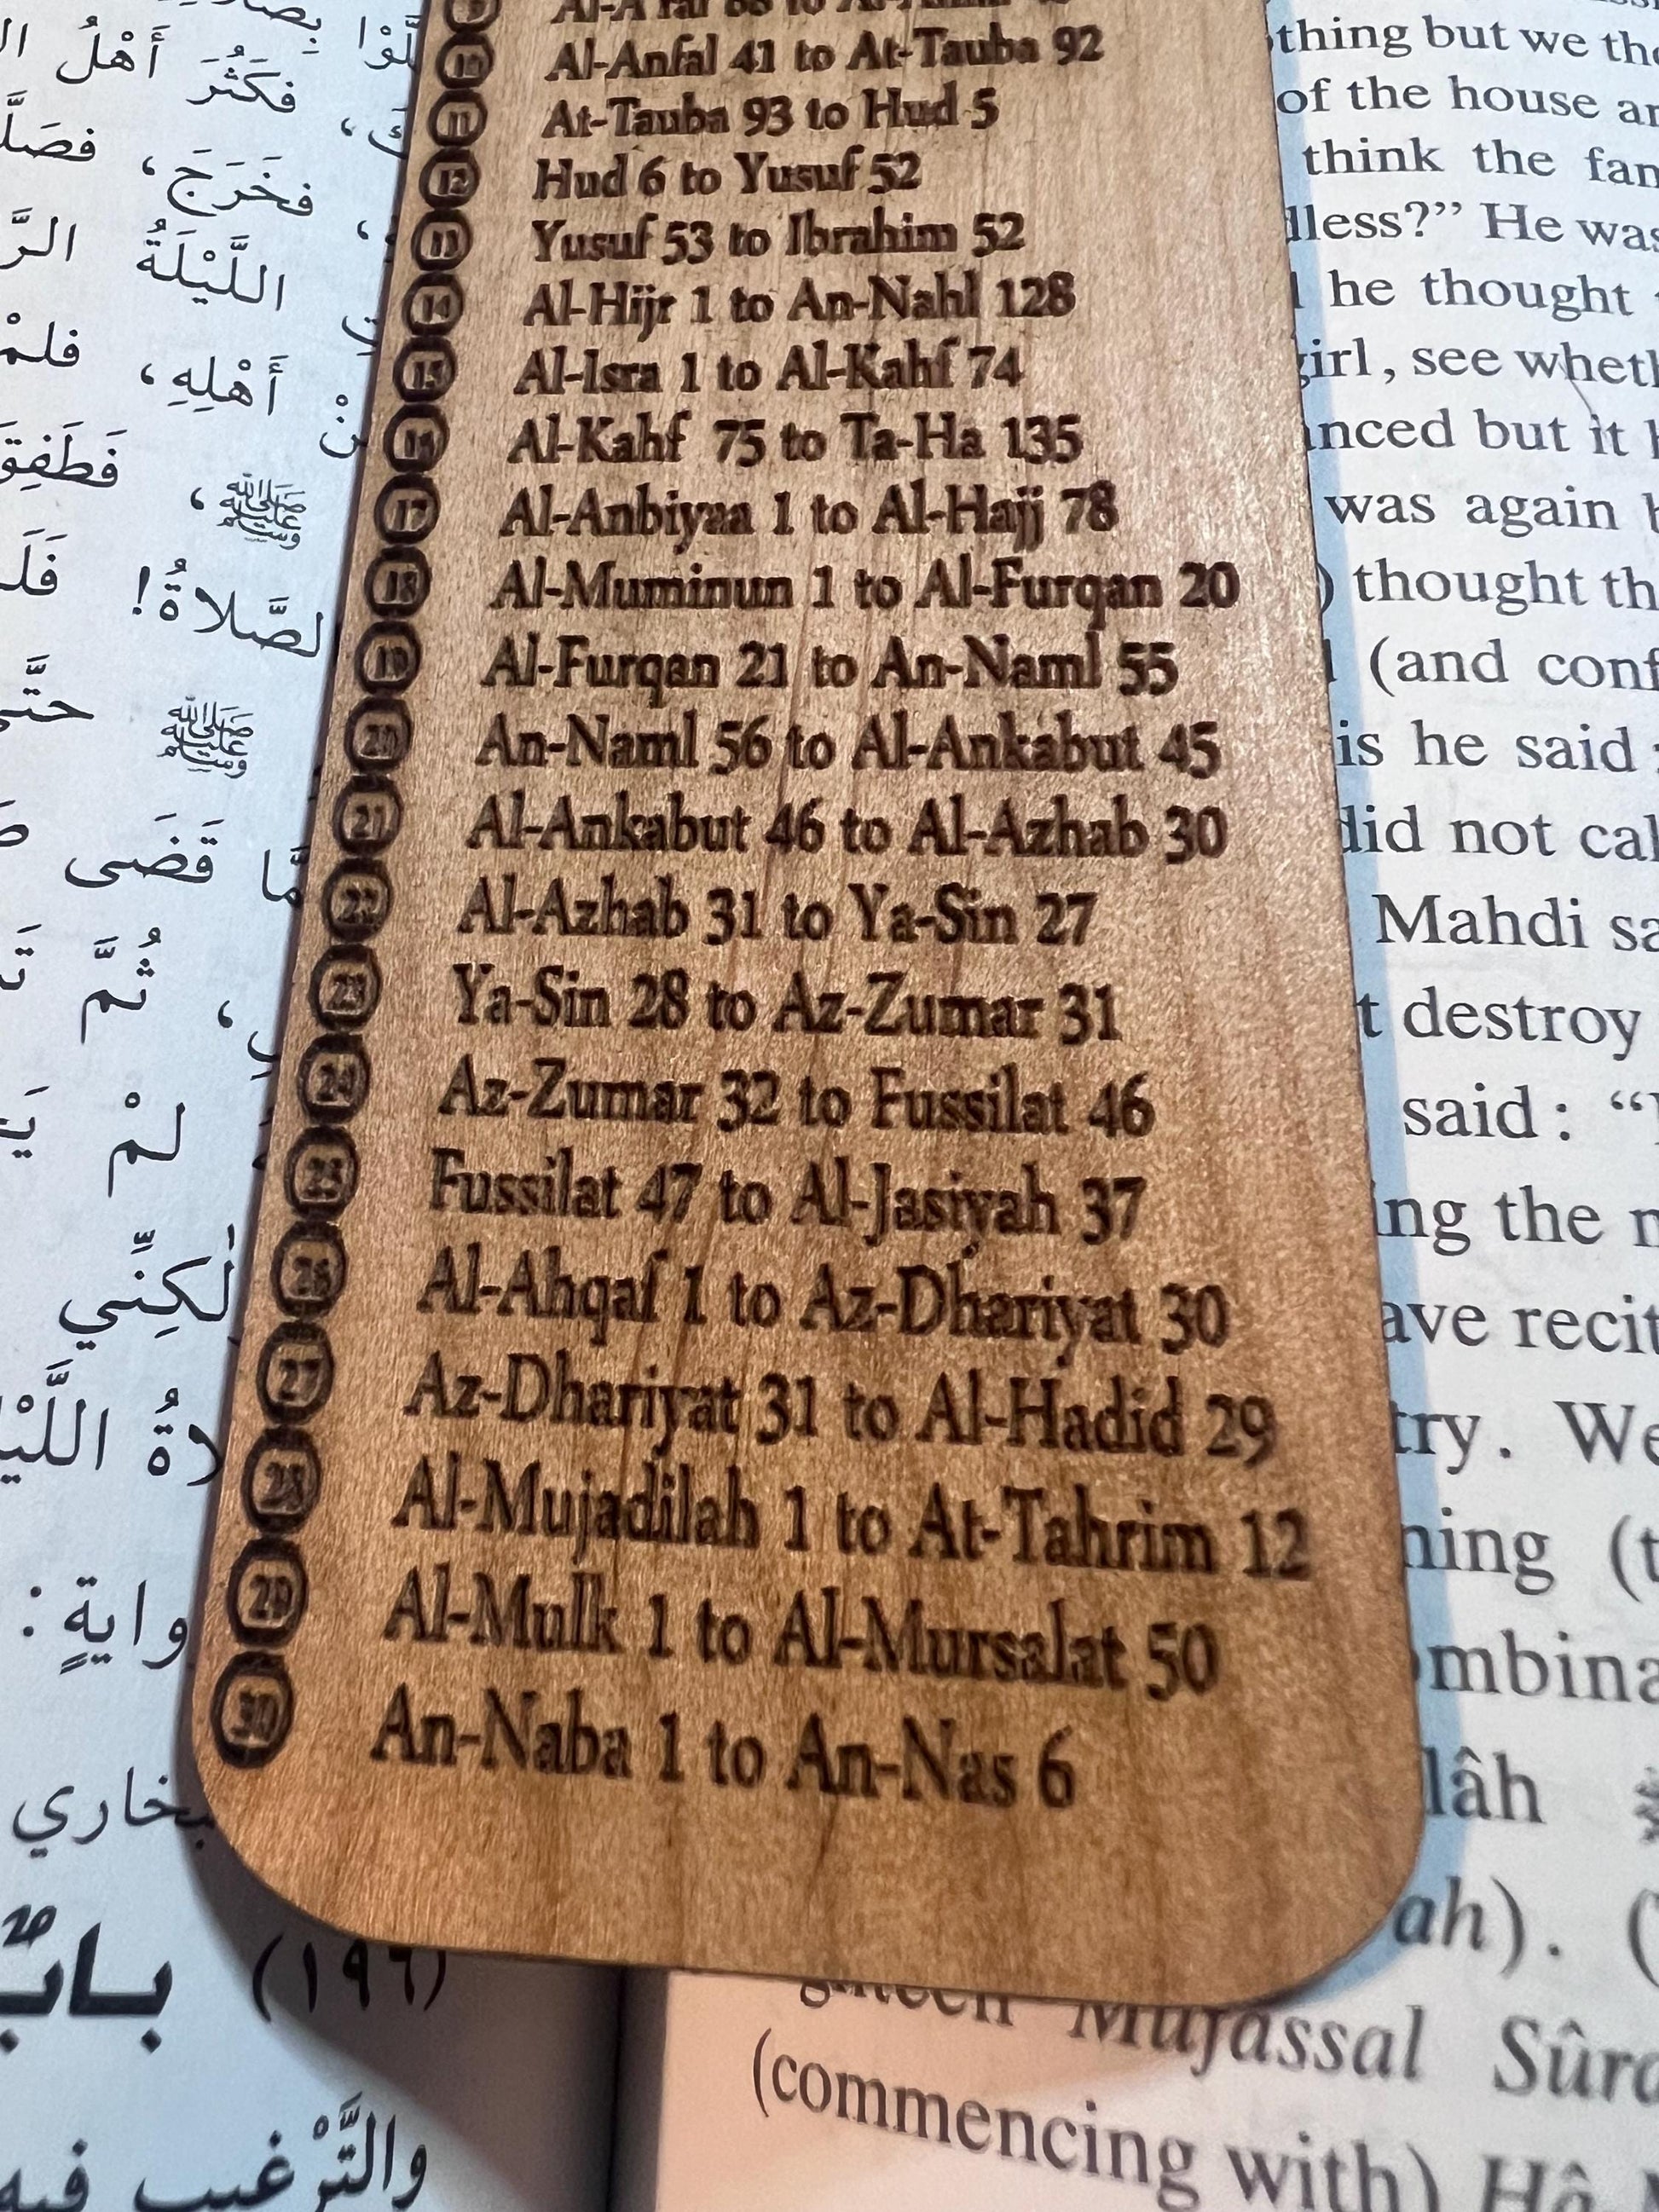 10 Al-Anfal 41 to At-Tauba 92
11 At-Tauba 93 to Hud 5
12 Hud 6 to Yusuf 52
13 Yusuf 53 to Ibrahim 52
14 Al-Hijr 1 to An-Nahl 128
15 Al-Isra 1 to Al-Kahf 74
16 Al-Kahf 75 to Ta-Ha 135
17 Al-Anbiyaa 1 to Al-Hajj 78
18 Al-Muminun 1 to Al-Furqan 20
19 Al-Furqan 21 to An-Naml 55
20 An-Naml 56 to Al-Ankabut 45
21 Al-Ankabut 46 to Al-Azhab 30
22 Al-Azhab 31 to Ya-Sin 27
23 Ya-Sin 28 to Az-Zumar 31
24 Az-Zumar 32 to Fussilat 46
25 Fussilat 47 to Al-Jasiyah 37
26 Al-Ahqaf 1 to Az-Dhariyat 30
27 Az-Dhariyat 31 to Al-Hadid 29
28 Al-Mujadilah 1 to At-Tahrim 12
29 Al-Mulk 1 to Al-Mursalat 50
30 An-Naba 1 to An-Nas 6
أَهْلُ
فكَثُرَ
فخَرَجَ،
اللَّيْلَةُ
أَهْلِهِ،
فلمْ
ﷺ،
لصَّلاةُ!
ﷺ
قَضَى
ثُمَّ
لمْ
لكِنِّي
وايةٍ:
بخاري
(١٩٦)
بابُ
والتَّرْغيب فيه
thing but we
of the house
think the
He was
he thought
girl, see
but it
was again
thought
(and
is he said
did not
Mahdi
destroy
said: “
the
try. We
(
Mufassal
(commencing with)